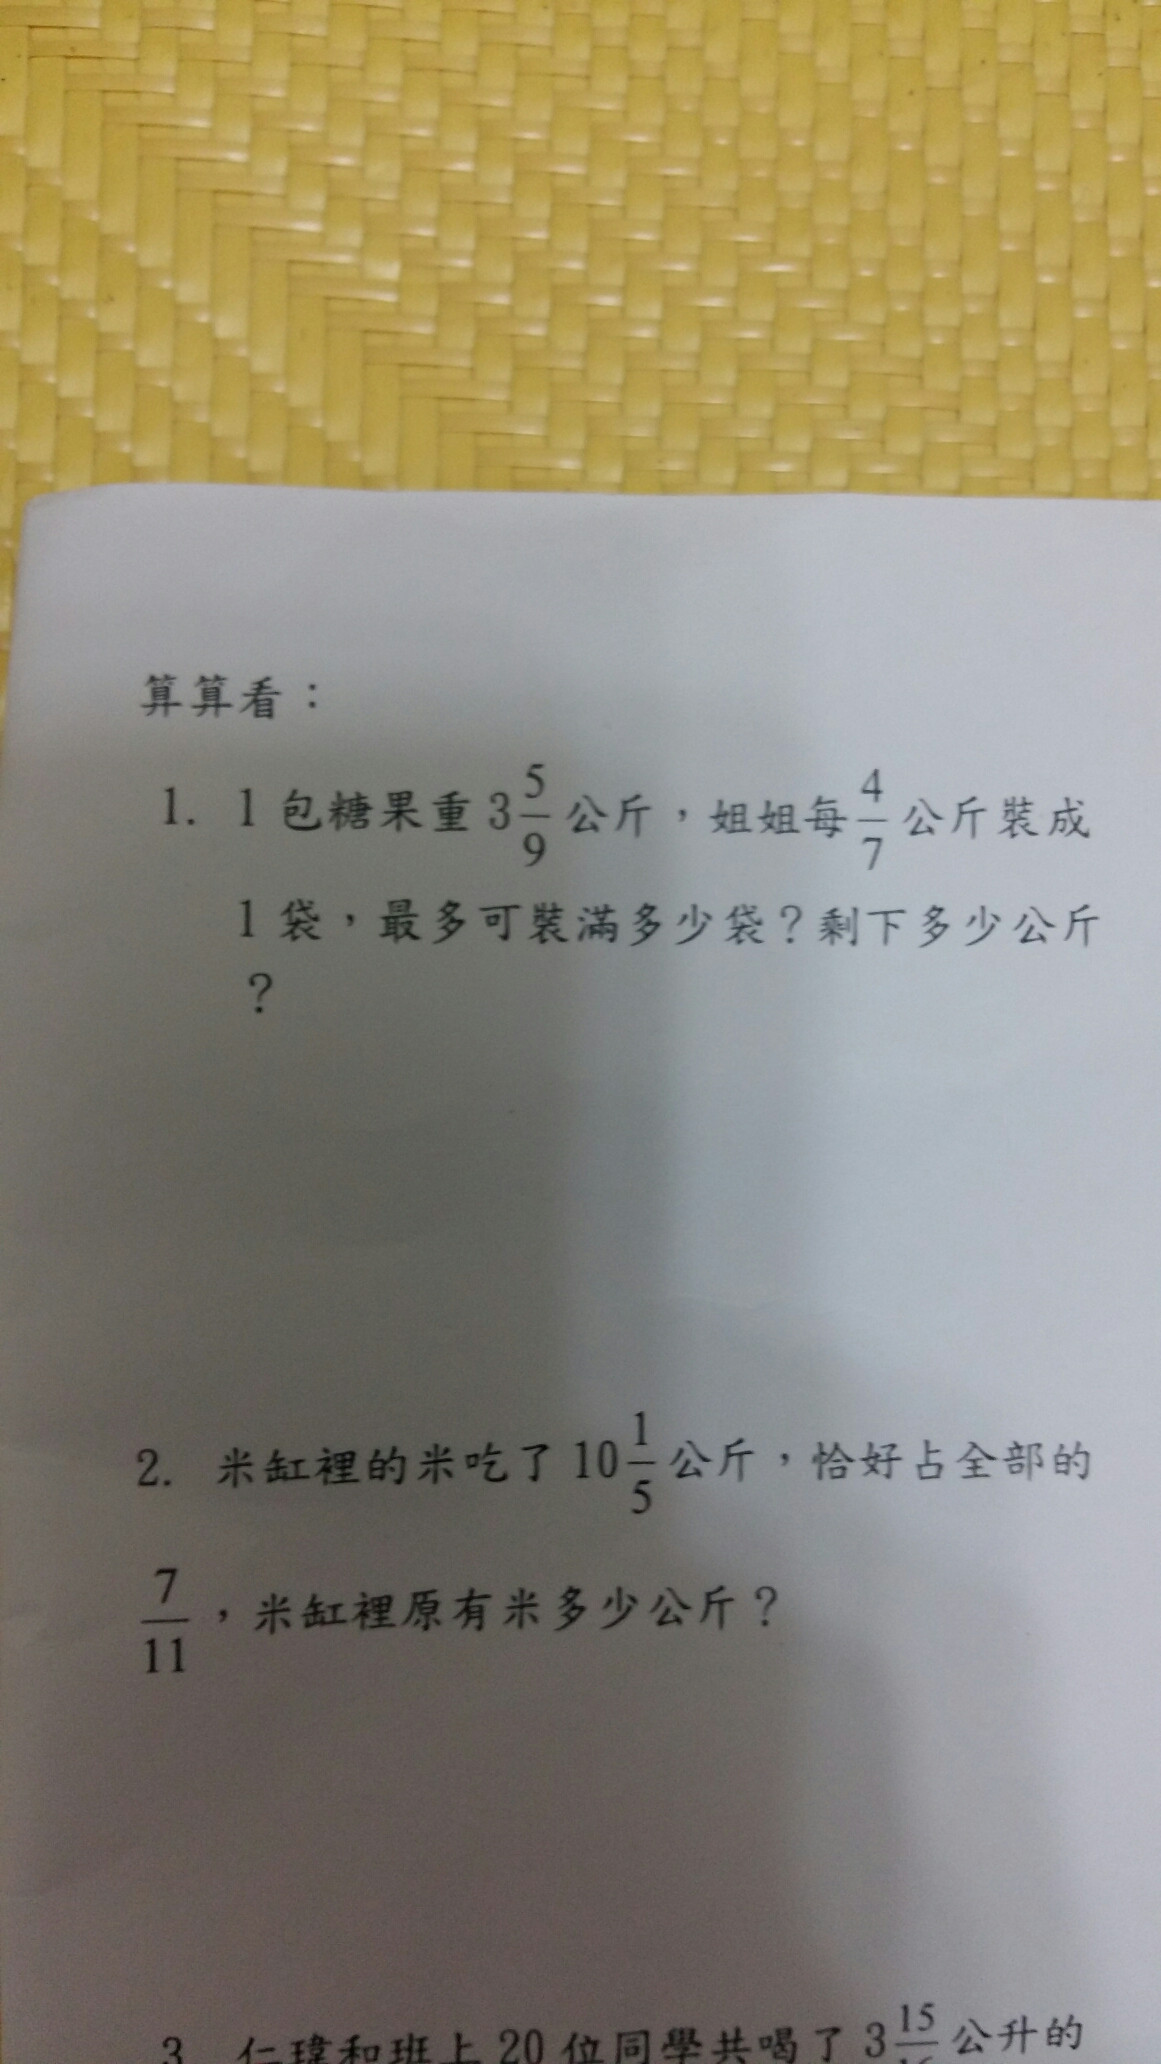 算算看：
1. 1包糖果重3 5/9公斤，姐姐每4/7公斤裝成
1袋，最多可裝滿多少袋？剩下多少公斤
？
2. 米缸裡的米吃了10 1/5公斤，恰好占全部的
7/11，米缸裡原有米多少公斤？
3 仁瑋和班上20位同學共喝了3 15/16公升的